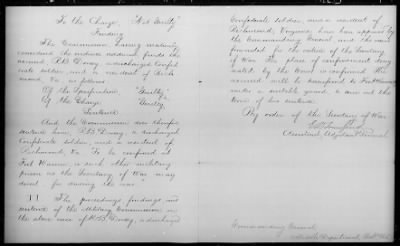 To the Charge, "Not Guilty"
Finding
The Commission, having maturely
considered the evidence adduced, finds the
accused, R.B. Dovey, a discharged Confed-
erate soldier, and a resident of Rich-
mond, Va. as follows
Of the Specification, "Guilty"
Of the Charge "Guilty"
Sentence
And the Commission does therefore
sentence him, R.B. Dovey, a discharged
Confederate soldier, and a resident of
Richmond, Va. To be confined at
Fort Warren, or such other military
prison as the Secretary of War may
direct for during the war"
VI The proceedings, findings and
sentence of the Military Commission in
the above case of R.B. Dovey, a discharged
Confederate soldier, and a resident of
Richmond, Virginia, have been approved by
the Commanding General, and the case
forwarded for the action of the Secretary
of War. The place of confinement desig-
nated by the Court is confirmed. The
accused will be forwarded to Fort Warren
under a suitable guard, to serve out the
term of his sentence.
By order of the Secretary of War.
E.D. Townsend
Assistant Adjutant General.
Commanding General,
Department